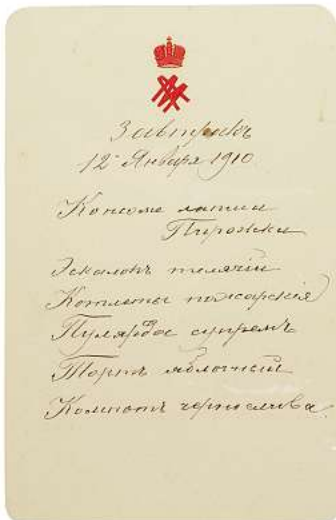 Завтракъ
12 Января 1910
Консоме латии
Пирожки
Эскалопъ телячiи
Котлеты пожарскiя
Пулярдъ супремъ
Тортъ яблочный
Компотъ чернослива.